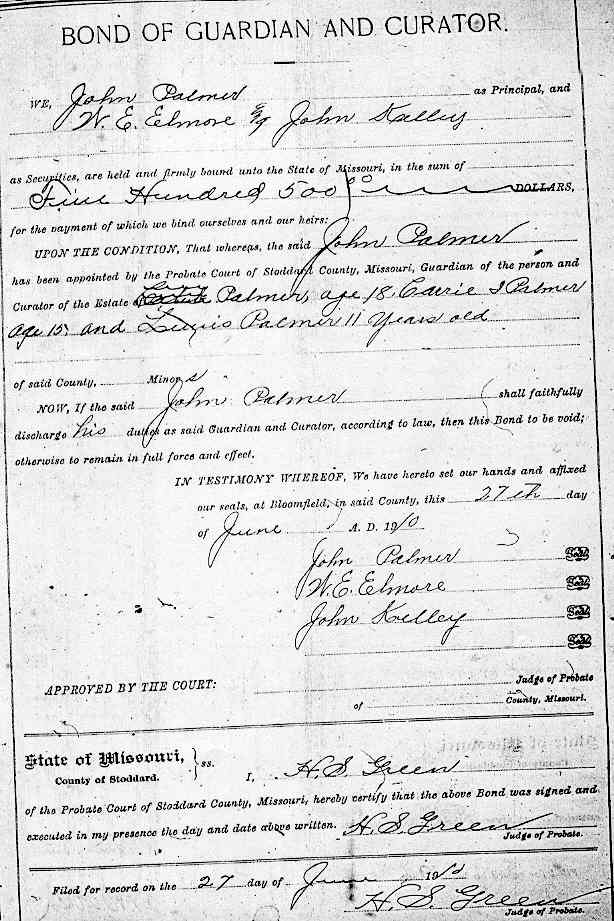 BOND OF GUARDIAN AND CURATOR.
WE, John Palmer as Principal, and
W. E. Elmore & John Kelley
as Securities, are held and firmly bound unto the State of Missouri, in the sum of
Five Hundred 500 00 DOLLARS,
for the payment of which we bind ourselves and our heirs:
UPON THE CONDITION, That whereas, the said John Palmer
has been appointed by the Probate Court of Stoddard County, Missouri, Guardian of the person and
Curator of the Estate of Palmer, age 18. Carrie I Palmer
age 15, and Palmer 11 Years old
of said County, Minors
NOW, If the said John Palmer shall faithfully
discharge his duties as said Guardian and Curator, according to law, then this Bond to be void;
otherwise to remain in full force and effect.
IN TESTIMONY WHEREOF, We have hereto set our hands and affixed
our seals, at Bloomfield, in said County, this 27th day
of June A. D. 1910
John Palmer Seal
W. E. Elmore Seal
John Kelley Seal
Seal
APPROVED BY THE COURT: Judge of Probate
of County, Missouri.
State of Missouri, } ss.
County of Stoddard. I, H. S. Green
of the Probate Court of Stoddard County, Missouri, hereby certify that the above Bond was signed and
executed in my presence the day and date above written. H. S. Green
Judge of Probate.
Filed for record on the 27 day of June 1910
H. S. Green
Judge of Probate.